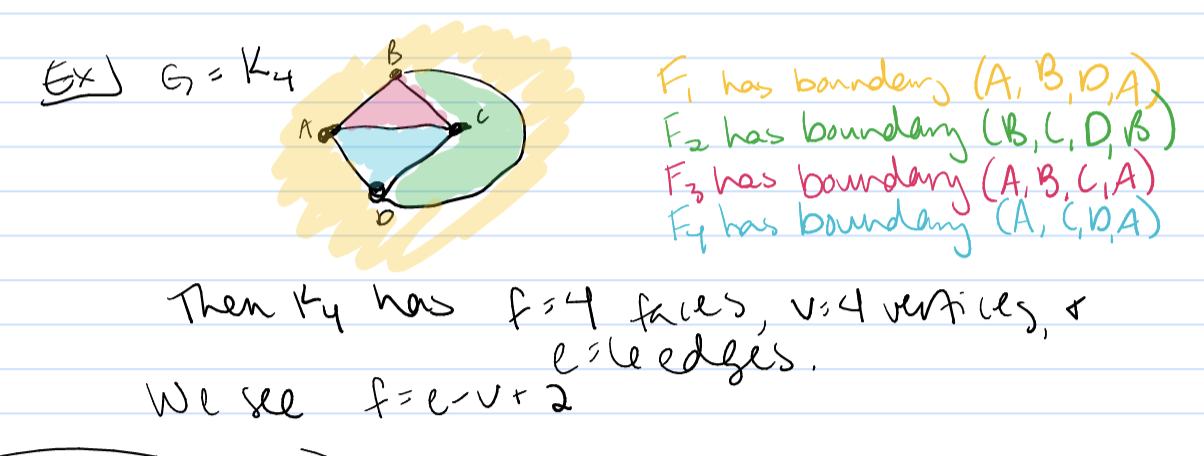 Ex] G = K4
B
A
C
D
F1 has boundary (A, B, D, A)
F2 has boundary (B, C, D, B)
F3 has boundary (A, B, C, A)
F4 has boundary (A, C, D, A)
Then K4 has f=4 faces, v=4 vertices, &
e=6 edges.
We see f=e-v+2